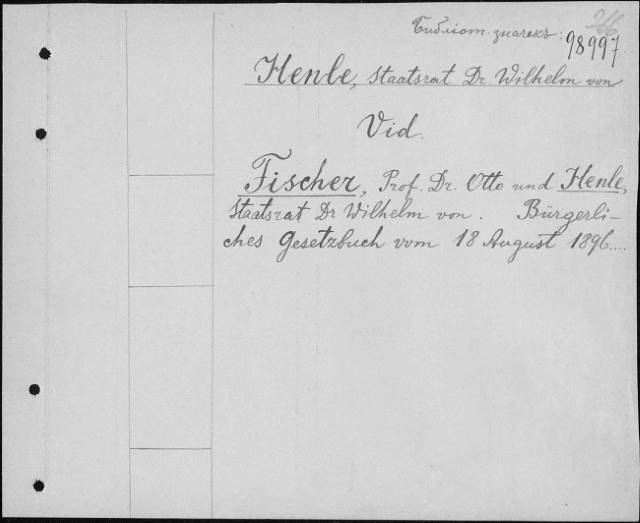 Библіот. значекъ: 98997.
Henle, Staatsrat Dr. Wilhelm von
Vid.
Fischer, Prof. Dr. Otto und Henle,
Staatsrat Dr Wilhelm von. Bürgerli-
ches Gesetzbuch vom 18 August 1896....